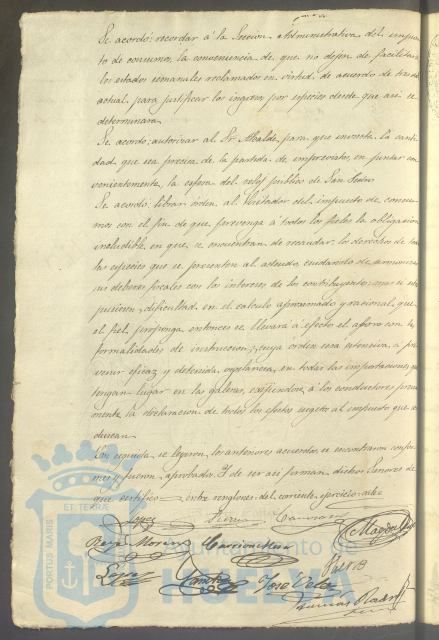 Se acordó: recordar á la Sección Administrativa del impues
to de consumo, la conveniencia de que no dejen de facilitar
los estados semanales reclamados en virtud de acuerdo de
actual para justificar los ingresos por especies desde que así se
determinara
Se acordó: autorizar al Sr. Alcalde, para que invierta la canti
dad que sea precisa de la partida de imprevistos, en pintar con
venientemente, la esfera del reloj público de San Pedro
Se acordó: librar orden al Visitador del impuesto de consu
mos con el fin de que prevenga á todos los fieles la obligación
ineludible, en que se encuentran de recaudar los derechos de
las especies que se presenten al adeudo, cuidando de armonizar
sus deberes fiscales con los intereses de los contribuyentes; mas si se
pusieren dificultad en el calculo aproximado y racional, que
el fiel proponga, entonces se llevará á efecto el aforo con
formalidades de instrucción; cuya orden será extensiva, á
venir eficaz y detenida vigilancia, en todas las importaciones que
tengan lugar en las galeras, exigiéndose á los conductores
mente la declaración de todos los efectos sugetos al impuesto que
duzcan
En seguida se leyeron los anteriores acuerdos, se encontraron confor
mes y fueron aprobados. Y de ser así firman dichos Señores de
que certifico = entre renglones: del corriente ejercicio:
Lopez
Garcia
Lopez Sanchez José
PORTUS MARIS ET TERRÆ
Ayuntamiento de
HUELVA